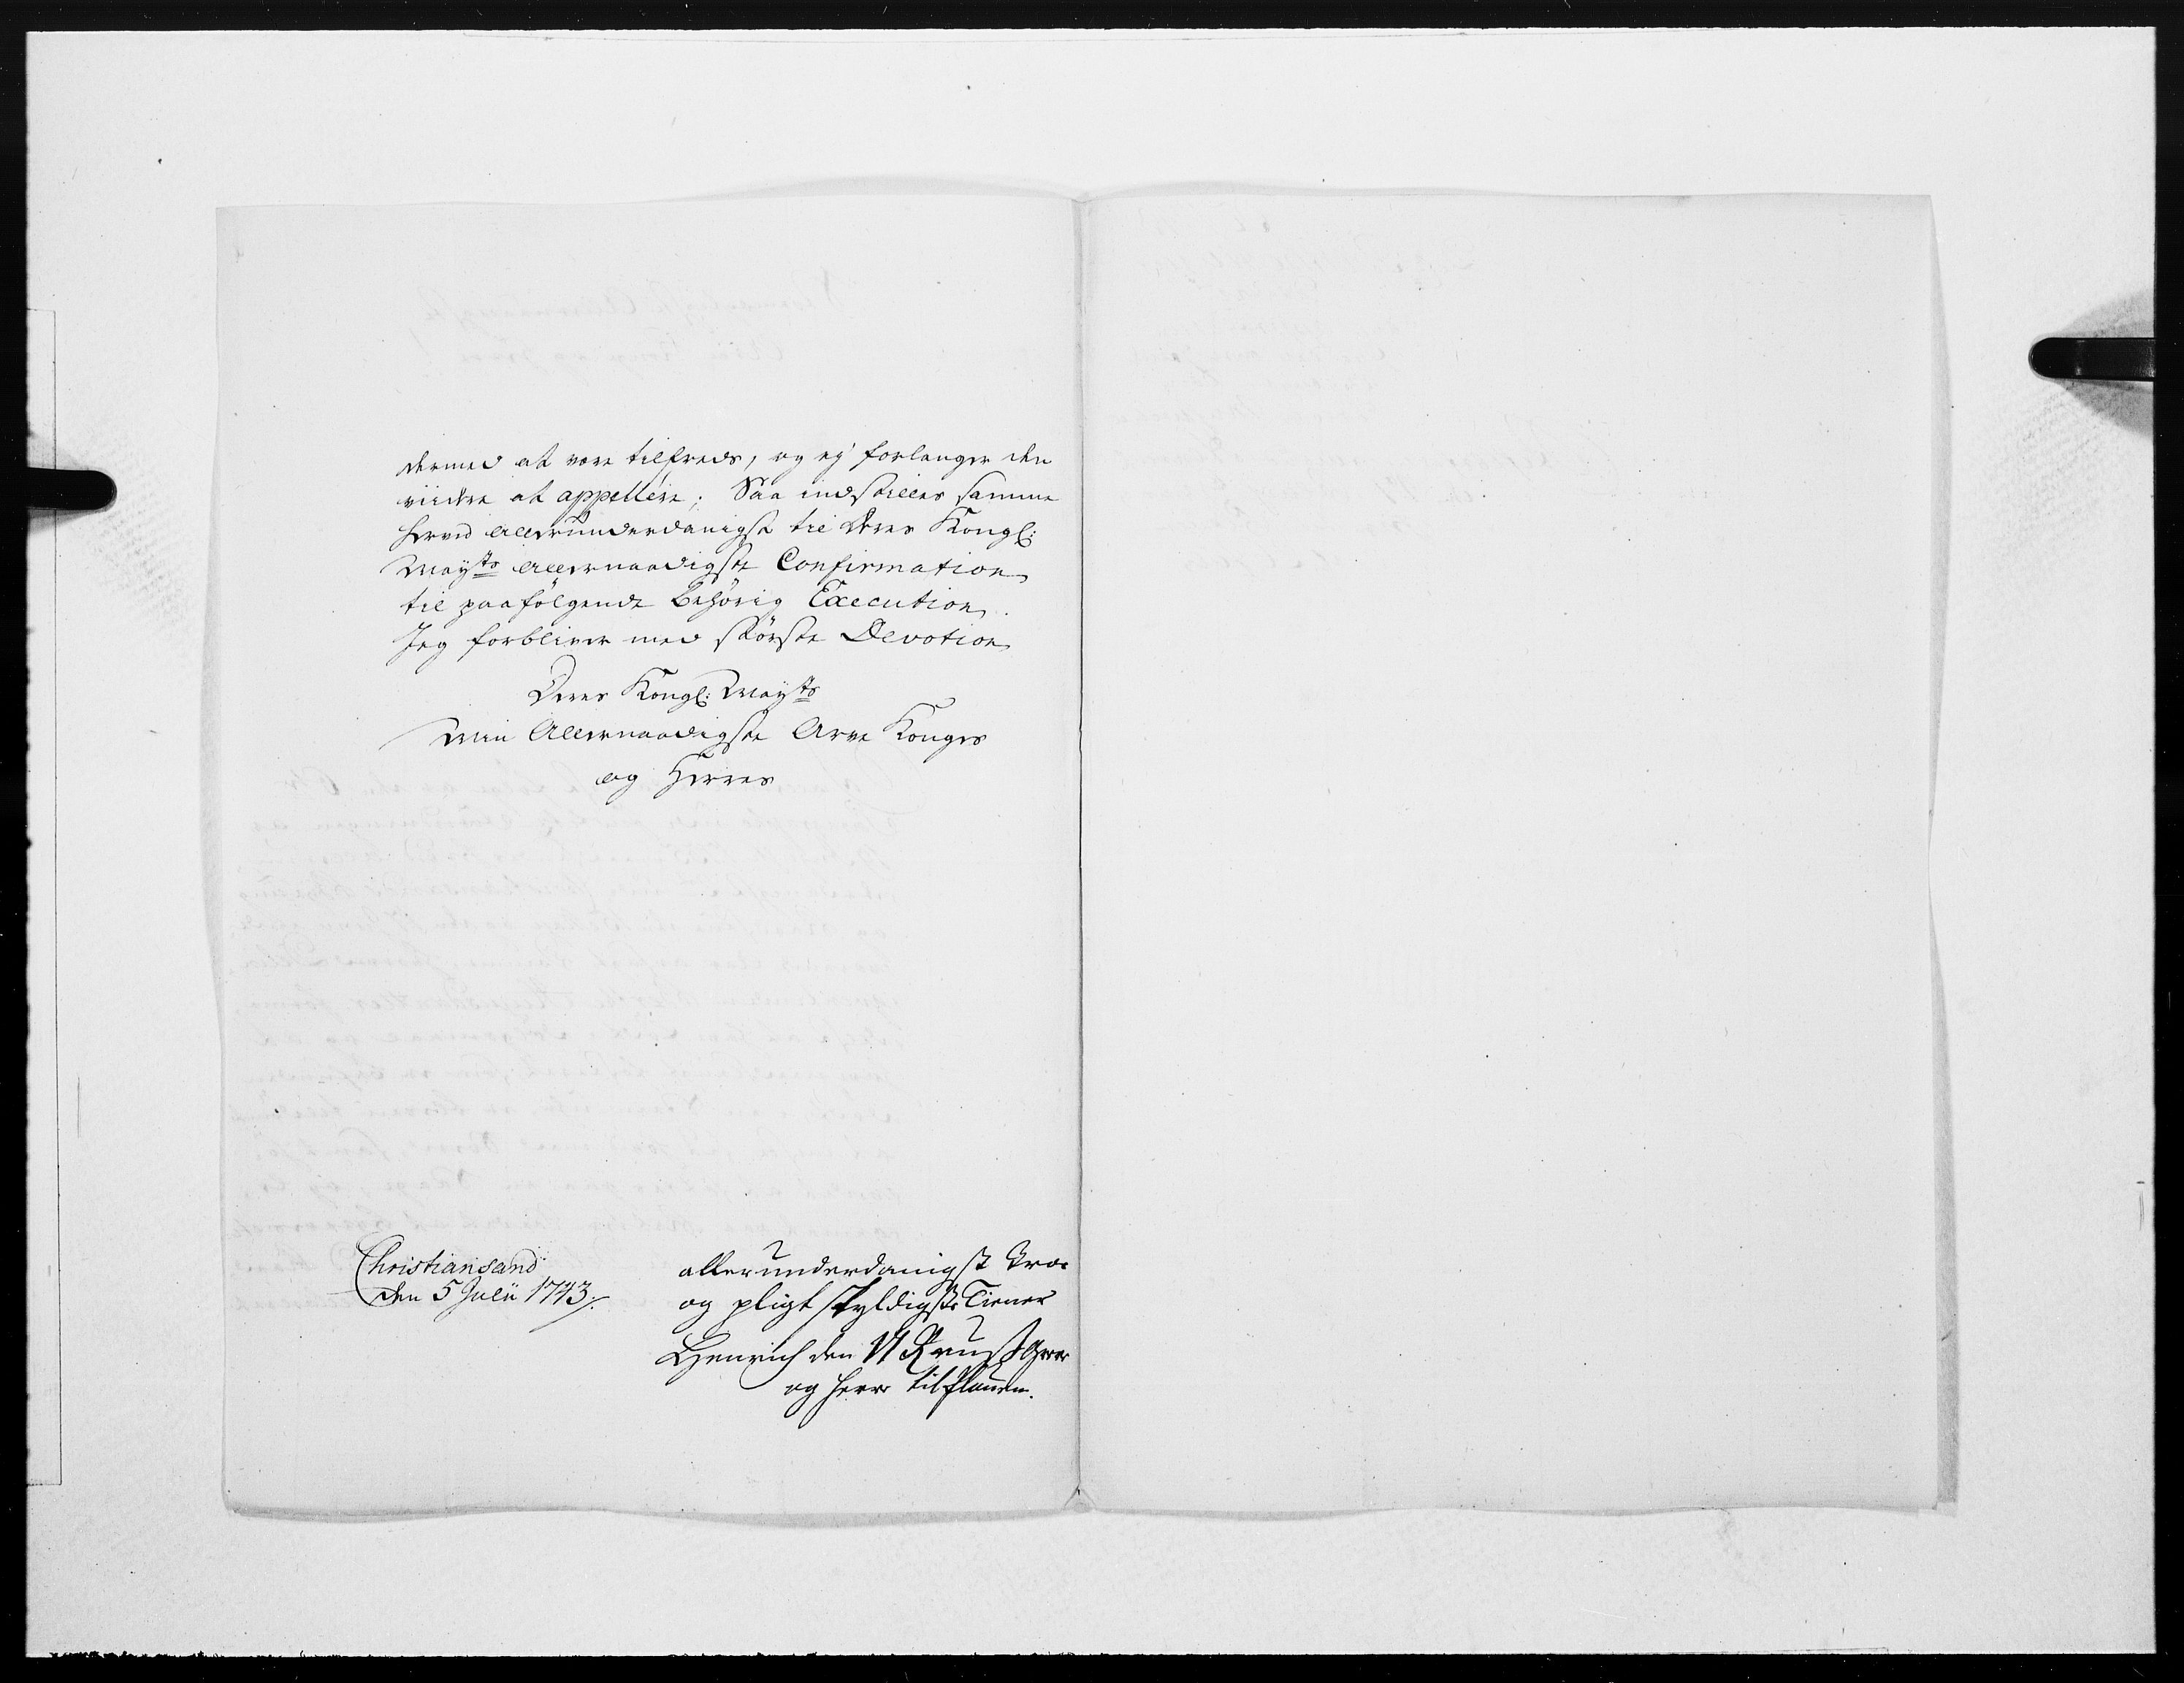 dermed at være tilfreds, og ej forlanger den
viidre at appellere; Saa indstilles samme
herved allerunderdanigst til Deres Kongl:
Mayts allernaadigste Confirmation
til paafølgende behørig Execution.
Jeg forbliver med største Devotion
Deres Kongl: Mayts
Min Allernaadigste Arve Konges
og Herres
Christiansand
den 5 Julii 1743
allerunderdanigst Troe
og pligt skyldigste Tiener
Henrich den VI Reuss Grev
og Herr til Plauen.